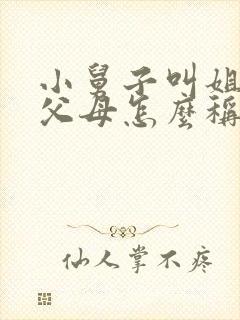 小舅子叫姐
父母怎麼稱
仙人掌不疼